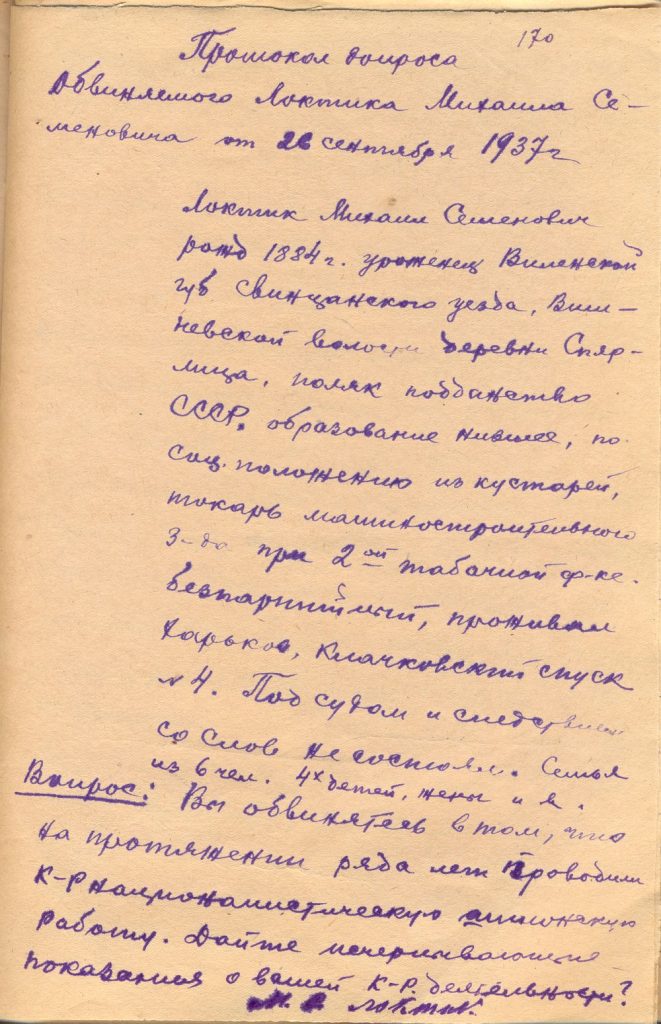 170
Протокол допроса
Обвиняемого Локтика Михаила Се-
меновича от 26 сентября 1937 г
Локтик Михаил Семенович
рожд 1884 г. уроженец Виленской
губ Свинцанского уезда, Виш-
невской волости деревни Спяг-
лица, поляк подданство
СССР. образование нисшее, по
соц. положению из кустарей,
токарь машиностроительного
з-да при 2ой табачной ф-ке.
Безпартийный, проживал
Харьков, Клочковский спуск
№4. Под судом и следствием
со слов не состоял. Семья
из 6 чел. 4х детей, жены и я.
Вопрос: Вы обвиняетесь в том, что
на протяжении ряда лет проводили
К-Р националистическую шпионскую
работу. Дайте исчерпывающие
показания о вашей К-Р. деятельности?
М. С. Локтик.